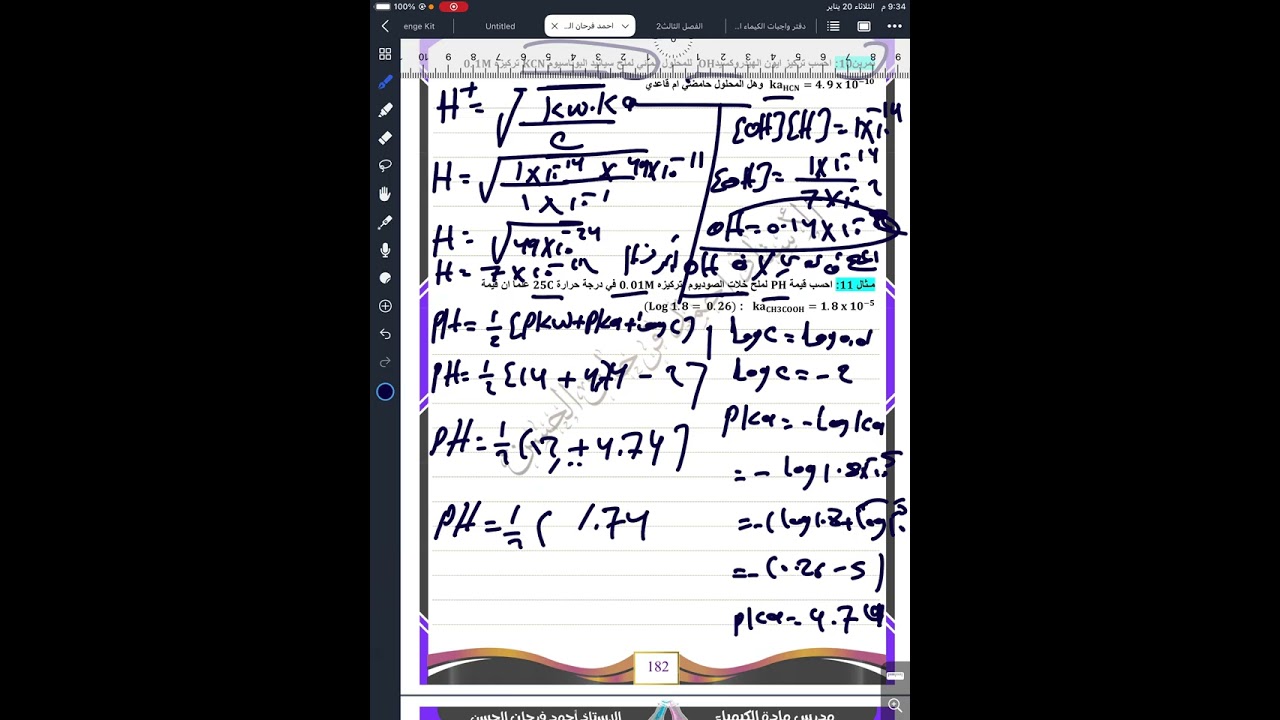 9:34 م الثلاثاء 20 يناير
100%
enge Kit
Untitled
احمد فرحان ال...
الفصل الثالث2
دفتر واجبات الكيمياء ا...
10 9 8 7 6 5 4 3 2 1 0 1 2 3 4 5 6 7 8 9
تمرين10: احسب تركيز ايون الهيدروكسيد OH للمحلول المائي لملح سيانيد البوتاسيوم KCN تركيزه 0.1M
kaHCN = 4.9 x 10⁻¹⁰ وهل المحلول حامضي ام قاعدي
H⁺ = √(kw.ka / C)
H = √(1x10⁻¹⁴ x 49x10⁻¹¹ / 1x10⁻¹)
H = √49x10⁻²⁴
H = 7x10⁻¹²
[OH][H] = 1x10⁻¹⁴
[OH] = 1x10⁻¹⁴ / 7x10⁻¹²
OH = 0.14x10⁻²
مثال 11: احسب قيمة PH لملح خلات الصوديوم تركيزه 0.01M في درجة حرارة 25C علما ان قيمة
(Log 1.8 = 0.26) : kaCH3COOH = 1.8 x 10⁻⁵
PH = ½ [Pkw + Pka + log C]
PH = ½ [14 + 4.74 - 2]
PH = ½ [12 + 4.74]
PH = ½ ( 1.74
Log C = Log 0.01
Log C = -2
Pka = -log ka
= - log 1.8x10⁻⁵
= -(log 1.8 + log 10⁻⁵
= -(0.26 - 5)
pka = 4.74
182
الاستاذ أحمد فرحان الحسن
مدرس مادة الكيمياء